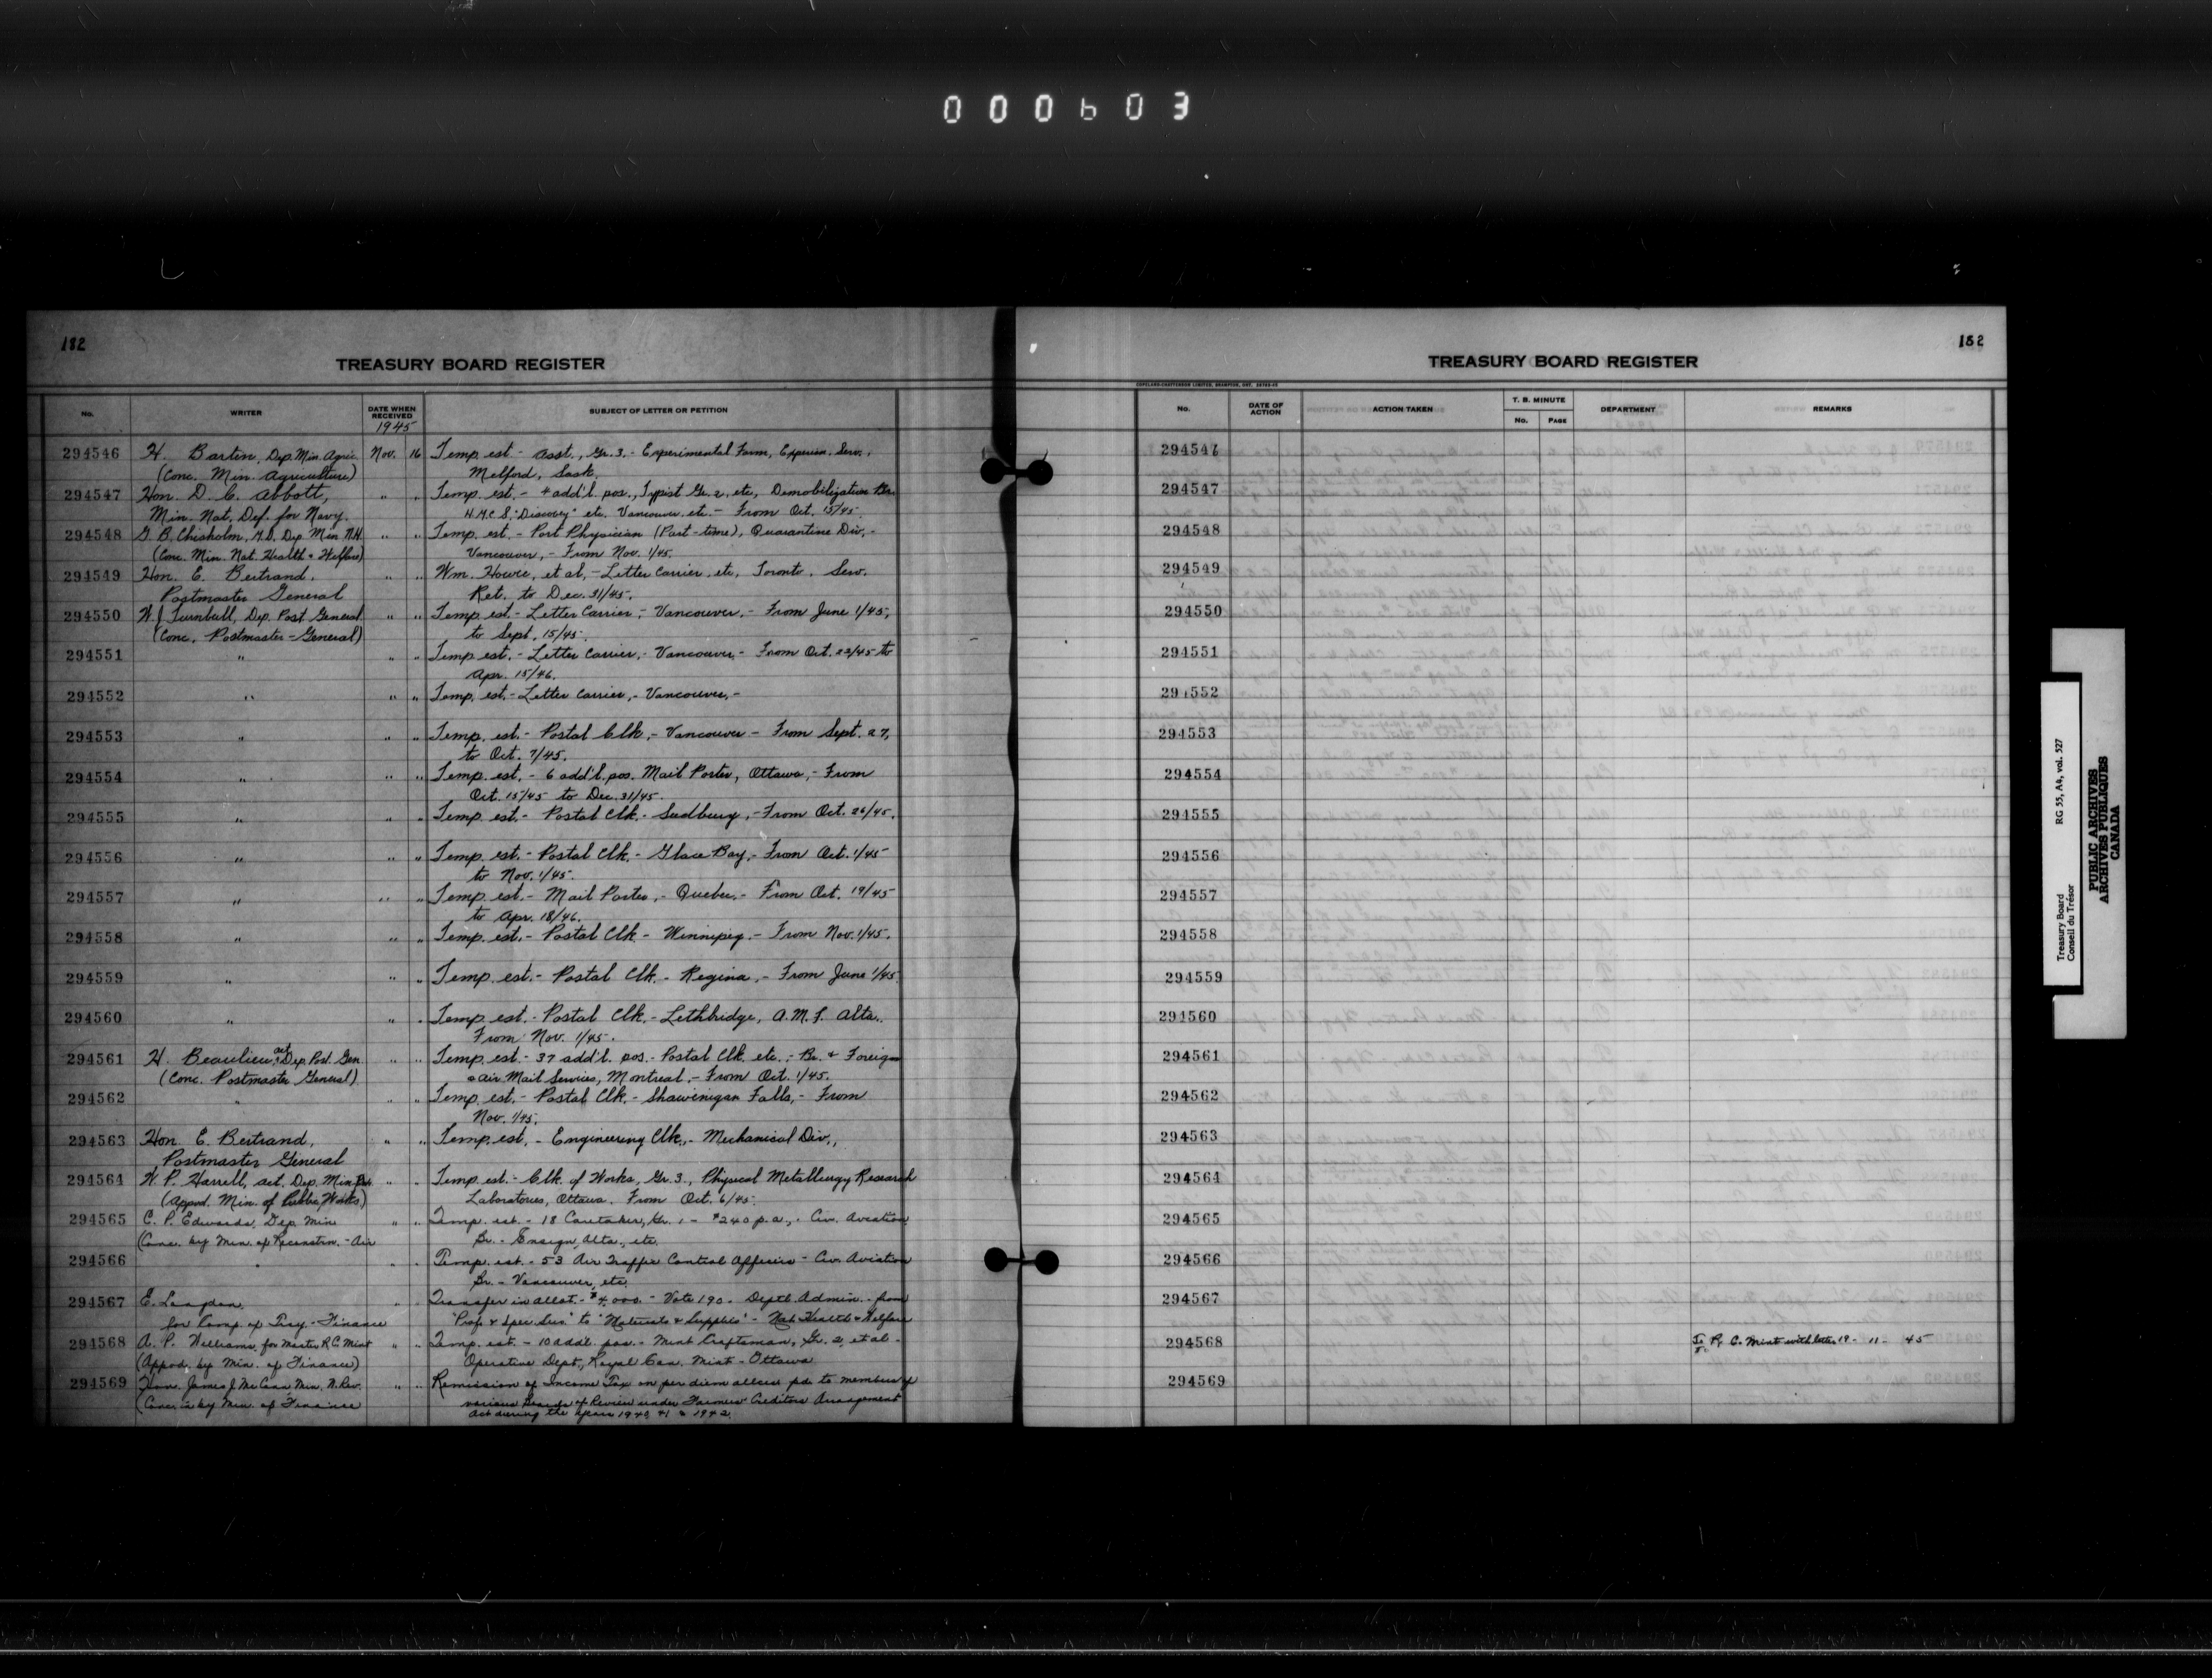 000603
182
TREASURY BOARD REGISTER
No.
WRITER
DATE WHEN RECEIVED
1945
SUBJECT OF LETTER OR PETITION
294546 H. Barton, Dep. Min. Agric. Nov. 16 Temp. est. - Asst., Gr. 3. - Experimental Farm, Experim. Serv.,
(Conc. Min. Agriculture) Melfort, Sask.
294547 Hon. D. C. Abbott, " " Temp. est. - 4 add'l. pos., Typist Gr. 2, etc, Demobilization Br.
Min. Nat. Def. for Navy. H.M.C.S. "Discovery" etc. Vancouver, etc. - From Oct. 15/45.
294548 G. B. Chisholm, M.D. Dep. Min. N.H. " " Temp. est. - Port Physician (Part-time), Quarantine Div, -
(Conc. Min. Nat. Health & Welfare) Vancouver, - From Nov. 1/45.
294549 Hon. E. Bertrand, " " Wm. Howie, et al, - Letter Carrier, etc, Toronto. Serv.
Postmaster General Ret. to Dec. 31/45.
294550 W. J. Turnbull, Dep. Post General " " Temp. est. - Letter Carrier, - Vancouver, - From June 1/45,
(Conc. Postmaster-General) to Sept. 15/45.
294551 " " " Temp. est. - Letter Carrier, - Vancouver, - From Oct. 22/45 to
Apr. 15/46.
294552 " " " Temp. est. - Letter Carrier, - Vancouver, -
294553 " " " Temp. est. - Postal Clk, - Vancouver - From Sept. 27,
to Oct. 7/45.
294554 " " " Temp. est. - 6 add'l. pos. Mail Porter, Ottawa, - From
Oct. 15/45 to Dec. 31/45.
294555 " " " Temp. est. - Postal Clk. - Sudbury, - From Oct. 26/45.
294556 " " " Temp. est. - Postal Clk. - Glace Bay, - From Oct. 1/45
to Nov. 1/45.
294557 " " " Temp. est. - Mail Porter, - Quebec, - From Oct. 19/45
to Apr. 18/46.
294558 " " " Temp. est. - Postal Clk - Winnipeg. - From Nov. 1/45.
294559 " " " Temp. est. - Postal Clk. - Regina, - From June 1/45.
294560 " " " Temp. est. - Postal Clk. - Lethbridge, A.M.F. Alta.
From Nov. 1/45.
294561 H. Beaulieu, act. Dep. Post. Gen. " " Temp. est. - 37 add'l. pos. - Postal Clk. etc., - Br. & Foreign
(Conc. Postmaster General) & Air Mail Services, Montreal, - From Oct. 1/45.
294562 " " " Temp. est. - Postal Clk. - Shawinigan Falls, - From
Nov. 1/45.
294563 Hon. E. Bertrand, " " Temp. est. - Engineering Clk., - Mechanical Div.,
Postmaster General
294564 W. P. Harrell, act. Dep. Min. " " Temp. est. - Clk. of Works, Gr. 3., Physical Metallurgy Research
(Appvd. Min. of Public Works) Laboratories, Ottawa. From Oct. 6/45.
294565 C. P. Edwards, Dep. Min. " " Temp. est. - 18 Caretaker, Gr. 1 - $240 p.a., - Civ. Aviation
(Conc. by Min. of Reconstrn. - Air Br. - Ensign, Alta., etc.
294566 " " " Temp. est. - 53 Air Traffic Control Officers - Civ. Aviation
Br. - Vancouver, etc.
294567 E. Langdon, " Transfer in allot. - $4,000. - Vote 190 - Deptl. Admin. - from
for Comp. of Trsy - Finance 'Prof. & Spec. Serv.' to 'Materials & Supplies' - Nat. Health & Welfare
294568 A. P. Williams, for Master R.C. Mint " " Temp. est. - 10 addl. pos. - Mint Craftsman, Gr. 2, et al -
(Appvd. by Min. of Finance) Operative Dept., Royal Can. Mint - Ottawa
294569 Hon. James J. McCann Min. N. Rev. " " Remission of Income Tax on per diem allces pd. to members of
(Conc. in by Min. of Finance various Boards of Review under Farmers' Creditors Arrangement
Act during the years 1940, 41 & 1942.
182
TREASURY BOARD REGISTER
No.
DATE OF ACTION
ACTION TAKEN
T. B. MINUTE
No.
PAGE
DEPARTMENT
REMARKS
294546
294547
294548
294549
294550
294551
294552
294553
294554
294555
294556
294557
294558
294559
294560
294561
294562
294563
294564
294565
294566
294567
294568 To R. C. Mint with letter 19-11-45
294569
Treasury Board RG 55, A4, vol. 527
Conseil du Trésor
PUBLIC ARCHIVES
ARCHIVES PUBLIQUES
CANADA